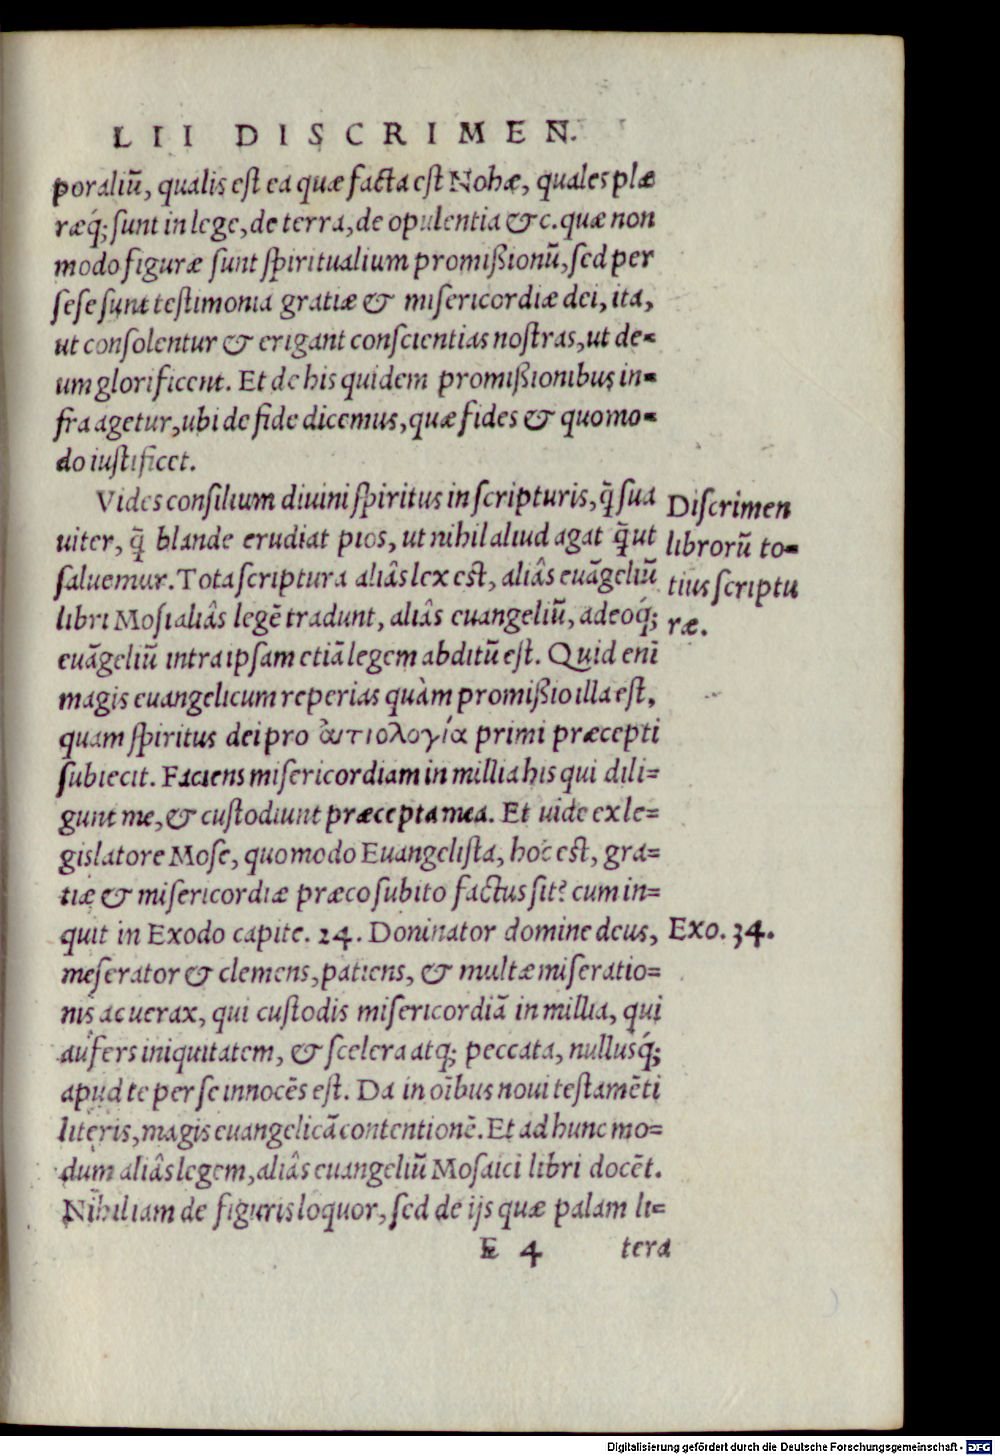 LII DISCRIMEN.
poraliũ, qualis est ea quæ facta est Nohæ, quales plæ
ræq́; sunt in lege, de terra, de opulentia & c. quæ non
modo figuræ sunt spiritualium promißionũ, sed per
sese sunt testimonia gratiæ & misericordiæ dei, ita,
ut consolentur & erigant conscientias nostras, ut de=
um glorificent. Et de his quidem promißionibus in=
fra agetur, ubi de fide dicemus, quæ fides & quomo=
do iustificet.
Vides consilium diuini spiritus in scripturis, q̃ sua
uiter, q̃ blande erudiat pios, ut nihil aliud agat q̃ ut
saluemur. Tota scriptura aliâs lex est, aliâs euãgeliũ
libri Mosi aliâs legẽ tradunt, aliâs euangeliũ, adeoq́;
euãgeliũ intra ipsam etiã legem abditũ est. Quid enĩ
magis euangelicum reperias quàm promißio illa est,
quam spiritus dei pro ἀιτιολογία primi præcepti
subiecit. Faciens misericordiam in millia his qui dili=
gunt me, & custodiunt præcepta mea. Et uide ex le=
gislatore Mose, quomodo Euangelista, hoc est, gra=
tiæ & misericordiæ præco subito factus sit? cum in=
quit in Exodo capite. 24. Dominator domine deus,
meserator & clemens, patiens, & multæ miseratio=
nis ac uerax, qui custodis misericordiã in millia, qui
aufers iniquitatem, & scelera atq; peccata, nullusq́;
apud te per se innocẽs est. Da in oĩbus noui testamẽti
literis, magis euangelicã contentionẽ. Et ad hunc mo=
dum aliâs legem, aliâs euangeliũ Mosaici libri docẽt.
Nihil iam de figuris loquor, sed de ijs quæ palam li=
E 4 tera
Discrimen
librorũ to=
tius scriptu
ræ.
Exo. 34.
Digitalisierung gefördert durch die Deutsche Forschungsgemeinschaft - DFG